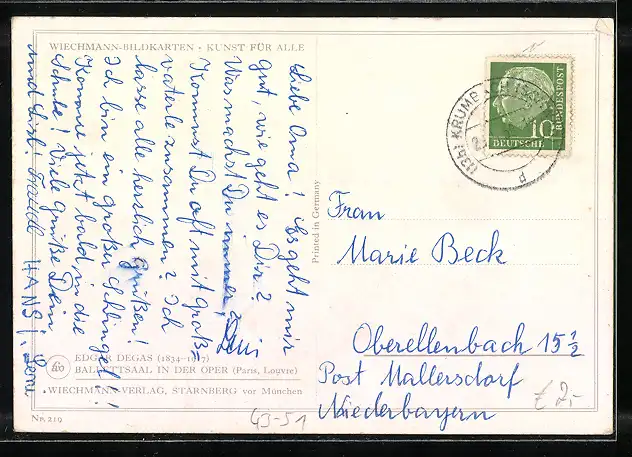 WIECHMANN-BILDKARTEN • KUNST FÜR ALLE
Liebe Oma! Es geht mir
gut, wie geht es Dir?
Was machst Du immer?
Kommst Du oft mit Groß-
vaterle zusammen? Ich
lasse alle herzlich Grüßen!
Ich bin ein großer Schlingel!!!
Komme jetzt bald in die
Schule! Viele Grüße Dein
HANSI.
EDGAR DEGAS (1834—1917)
BALLETTSAAL IN DER OPER (Paris, Louvre)
WIECHMANN-VERLAG, STARNBERG vor München
Nr. 219
Printed in Germany
10
DEUTSCHE
BUNDESPOST
(13b) KRUMBACH
d
Frau
Marie Beck
Oberellenbach 15 1/2
Post Mallersdorf
Niederbayern
43-51
€ 2,-